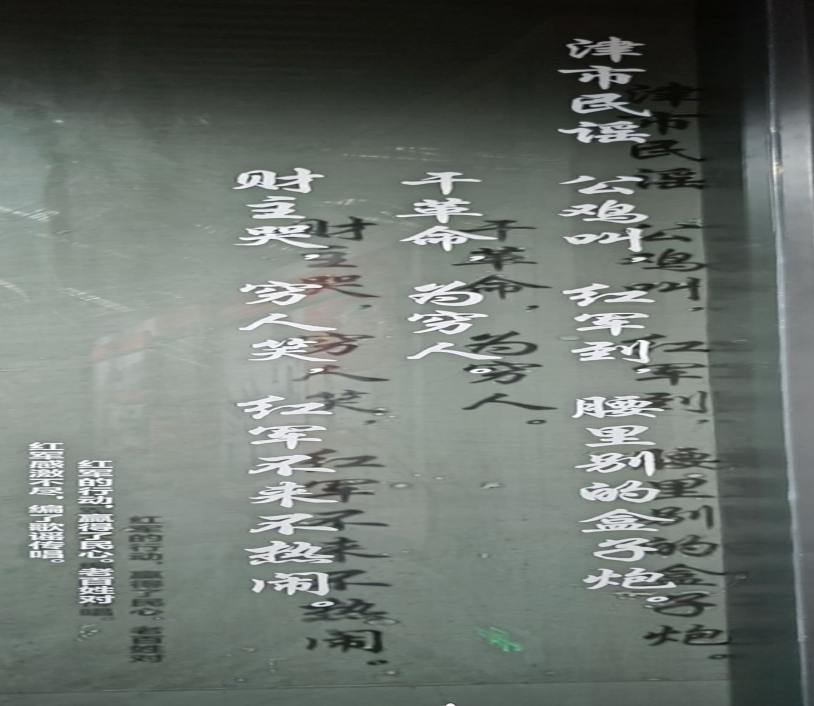 津市民谣 公鸡叫，红军到，腰里别的盒子炮。
干革命，为穷人。
财主哭，穷人笑，红军不来不热闹。
红军的行动，赢得了民心。老百姓对
红军感激不尽，编了歌谣传唱。